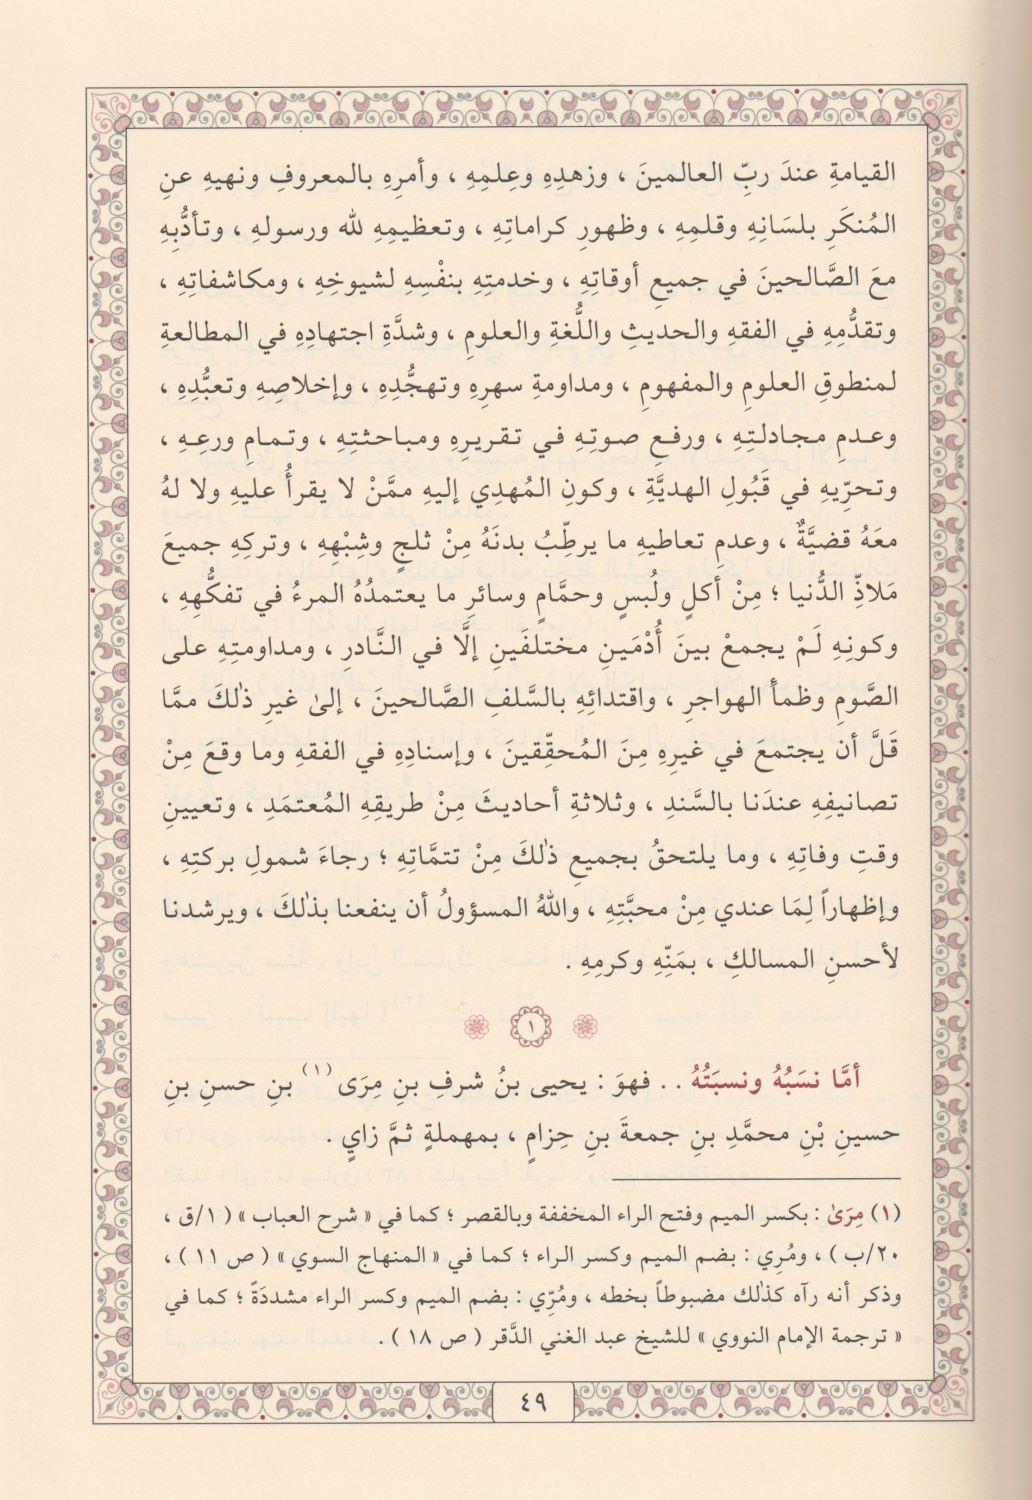 القيامةِ عندَ ربِّ العالمينَ ، وزهدِهِ وعِلمِهِ ، وأمرِهِ بالمعروفِ ونهيهِ عنِ
المُنكَرِ بلسَانِهِ وقلمِهِ ، وظهورِ كراماتِهِ ، وتعظيمِهِ لله ورسولهِ ، وتأدُّبِهِ
معَ الصَّالحينَ في جميعِ أوقاتِهِ ، وخدمتِهِ بنفْسِهِ لشيوخِهِ ، ومكاشفاتِهِ ،
وتقدُّمِهِ في الفقهِ والحديثِ واللُّغةِ والعلومِ ، وشدَّةِ اجتهادِهِ في المطالعةِ
لمنطوقِ العلومِ والمفهومِ ، ومداومةِ سهرِهِ وتهجُّدِهِ ، وإخلاصِهِ وتعبُّدِهِ ،
وعدمِ مجادلتِهِ ، ورفعِ صوتِهِ في تقريرِهِ ومباحثتِهِ ، وتمامِ ورعِهِ ،
وتحرّيهِ في قَبُولِ الهديَّةِ ، وكونِ المُهدِي إليهِ ممَّنْ لا يقرأُ عليهِ ولا لهُ
معَهُ قضيَّةٌ ، وعدمِ تعاطيهِ ما يرطِّبُ بدنَهُ مِنْ ثلجٍ وشِبْهِهِ ، وتركِهِ جميعَ
مَلاذِّ الدُّنيا ؛ مِنْ أكلٍ ولُبسٍ وحمَّامٍ وسائرِ ما يعتمدُهُ المرءُ في تفكُّهِهِ ،
وكونِهِ لَمْ يجمعْ بينَ أُدْمَينِ مختلفَينِ إلَّا في النَّادرِ ، ومداومتِهِ على
الصَّومِ وظمأ الهواجرِ ، واقتدائِهِ بالسَّلفِ الصَّالحينَ ، إلىٰ غيرِ ذٰلكَ ممَّا
قَلَّ أن يجتمعَ في غيرِهِ مِنَ المُحقِّقينَ ، وإسنادِهِ في الفقهِ وما وقعَ مِنْ
تصانيفِهِ عندَنا بالسَّندِ ، وثلاثةِ أحاديثَ مِنْ طريقِهِ المُعتمَدِ ، وتعيينِ
وقتِ وفاتِهِ ، وما يلتحقُ بجميعِ ذٰلكَ مِنْ تتمَّاتِهِ ؛ رجاءَ شمولِ بركتِهِ ،
وإظهاراً لِمَا عندي مِنْ محبَّتِهِ ، واللهُ المسؤولُ أن ينفعنا بذٰلكَ ، ويرشدنا
لأحسنِ المسالكِ ، بمَنِّهِ وكرمِهِ .
١
أمَّا نسَبُهُ ونسبَتُهُ . . فهوَ : يحيى بنُ شرفِ بنِ مِرَى (١) بنِ حسنِ بنِ
حسينِ بْنِ محمَّدِ بنِ جمعةَ بنِ حِزامٍ ، بمهملةٍ ثمَّ زايٍ .
(١) مِرَىٰ : بكسر الميم وفتح الراء المخففة وبالقصر ؛ كما في « شرح العباب » ( ١/ق ،
٢٠/ب ) ، ومُرِي : بضم الميم وكسر الراء ؛ كما في « المنهاج السوي » ( ص ١١ ) ،
وذكر أنه رآه كذٰلك مضبوطاً بخطه ، ومُرِّي : بضم الميم وكسر الراء مشددَةً ؛ كما في
« ترجمة الإمام النووي » للشيخ عبد الغني الدَّقر ( ص ١٨ ) .
٤٩